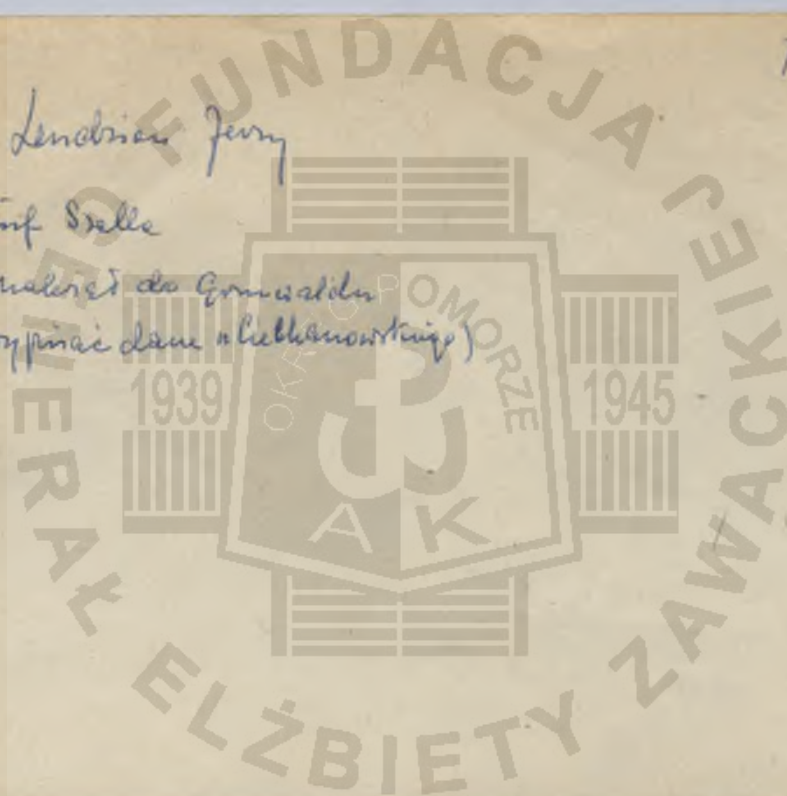 Lendzion Jerzy
inf. Szalla
należał do Grunwaldu
(wypisać dane u Ciechanowskiego)
FUNDACJA
GENERAŁ ELŻBIETY ZAWACKIEJ
OKRĘG POMORZE
1939
1945
AK